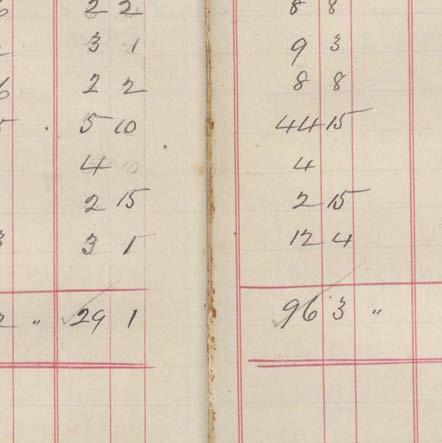 2 2 8 8
3 1 9 3
2 2 8 8
5 10 44 15
4 10 4
2 15 2 15
3 1 12 4
" 29 1 96 3 "